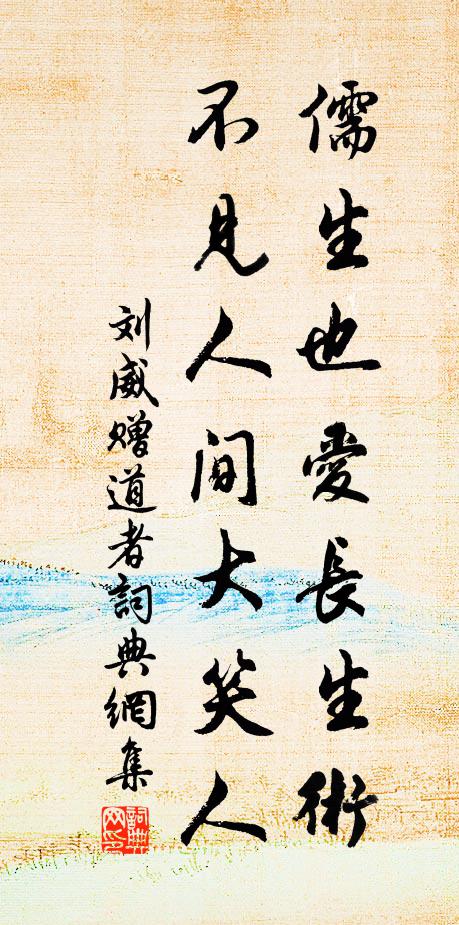 儒生也愛長生術
不見人間大笑人
刘威赠道者詞典網集
詞典
网印